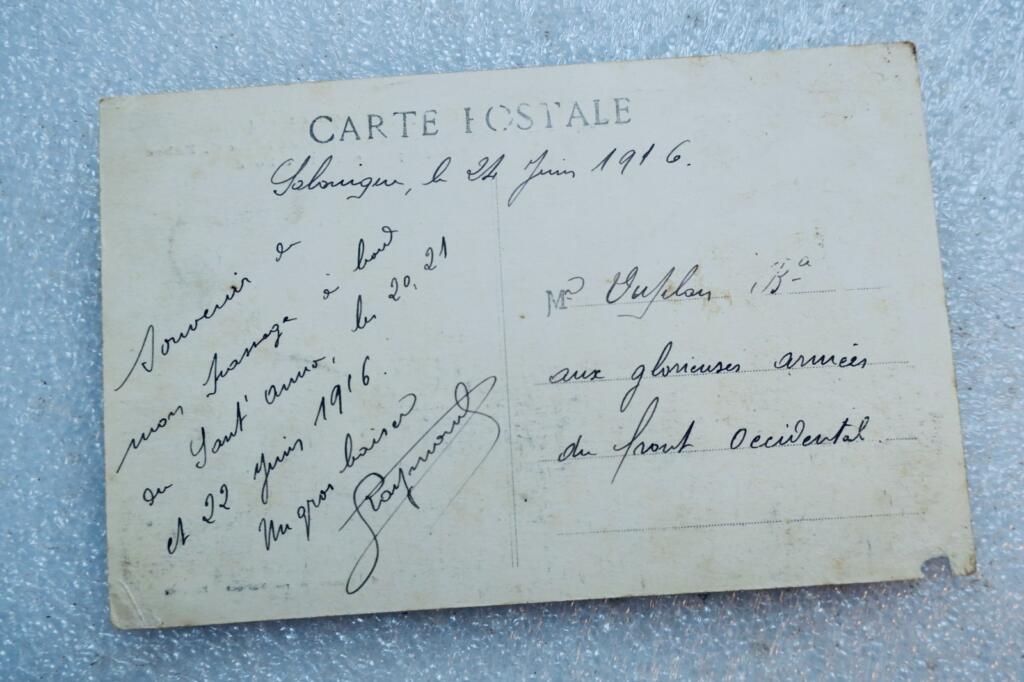 CARTE POSTALE
Salonique, le 24 Juin 1916.
Souvenir de
mon passage à bord
du Sant' anna, les 20, 21
et 22 Juin 1916.
Un gros baiser
Raymond
Mr
aux glorieuses armées
du front Occidental.